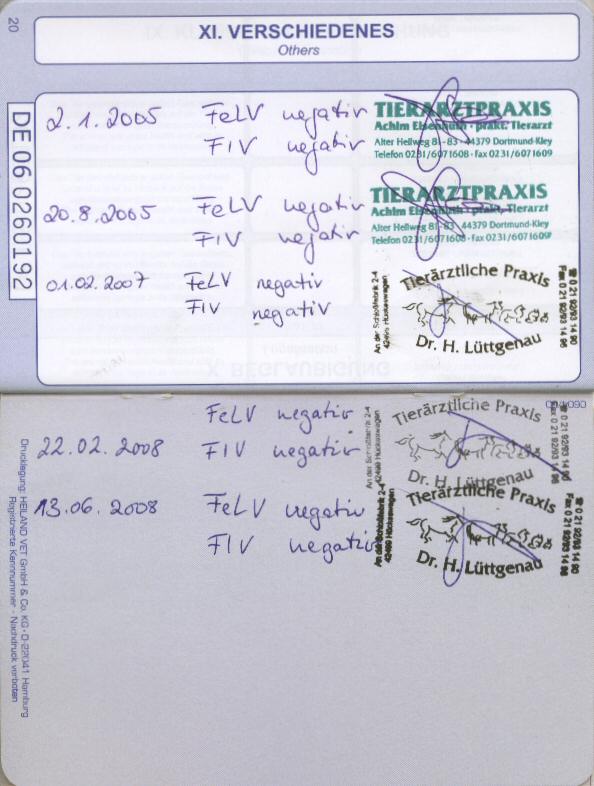 20
XI. VERSCHIEDENES
Others
DE 06 0260192
2.1.2005 FeLV negativ
FIV negativ
TIERARZTPRAXIS
Achim Eisenhuth · prakt. Tierarzt
Alter Hellweg 81 - 83 · 44379 Dortmund-Kley
Telefon 0231/6071608 · Fax 0231/6071609
20.8.2005 FeLV negativ
FIV negativ
TIERARZTPRAXIS
Achim Eisenhuth · prakt. Tierarzt
Alter Hellweg 81 - 83 · 44379 Dortmund-Kley
Telefon 0231/6071608 · Fax 0231/6071609
01.02.2007 FeLV negativ
FIV negativ
Tierärztliche Praxis
Dr. H. Lüttgenau
An der Schloßfabrik 2-4
42499 Hückeswagen
☎ 0 21 92/93 14 90
Fax 0 21 92/93 14 98
X. BEGLAUBIGUNG
FeLV negativ
22.02.2008 FIV negativ
Tierärztliche Praxis
Dr. H. Lüttgenau
An der Schloßfabrik 2-4
42499 Hückeswagen
☎ 0 21 92/93 14 90
Fax 0 21 92/93 14 98
13.06.2008 FeLV negativ
FIV negativ
Tierärztliche Praxis
Dr. H. Lüttgenau
An der Schloßfabrik 2-4
42499 Hückeswagen
☎ 0 21 92/93 14 90
Fax 0 21 92/93 14 98
Drucklegung: HEILAND VET GmbH & Co. KG · D-22041 Hamburg
Registrierte Kennnummer - Nachdruck verboten